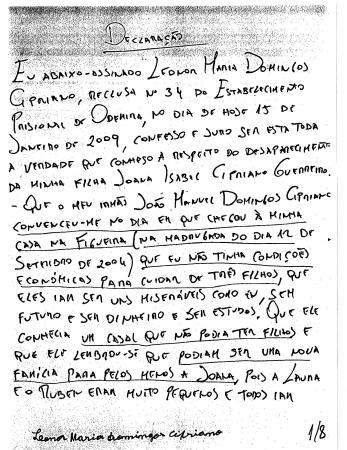 DECLARAÇÃO
EU ABAIXO-ASSINADO LEONOR MARIA DOMINGOS
CIPRIANO, RECLUSA Nº 34 DO ESTABELECIMENTO
PRISIONAL DE ODEMIRA, NO DIA DE HOJE 15 DE
JANEIRO DE 2009, CONFESSO E JURO SER ESTA TODA
A VERDADE QUE CONHEÇO A RESPEITO DO DESAPARECIMENTO
DA MINHA FILHA JOANA ISABEL CIPRIANO GUERREIRO.
- QUE O MEU IRMÃO JOÃO MANUEL DOMINGOS CIPRIANO
CONVENCEU-ME NO DIA EM QUE CHEGOU À MINHA
CASA NA FIGUEIRA (NA MADRUGADA DO DIA 12 DE
SETEMBRO DE 2004) QUE EU NÃO TINHA CONDIÇÕES
ECONÓMICAS PARA CUIDAR DE TRÊS FILHOS, QUE
ELES IAM SER UNS MISERÁVEIS COMO EU, SEM
FUTURO E SEM DINHEIRO E SEM ESTUDOS. QUE ELE
CONHECIA UM CASAL QUE NÃO PODIA TER FILHOS E
QUE ELE LEMBROU-SE QUE PODIAM SER UMA NOVA
FAMÍLIA PARA PELOS MENOS A JOANA, POIS A LAURA
E O RUBEN ERAM MUITO PEQUENOS E TODOS IAM
Leonor Maria Domingos Cipriano
1/8